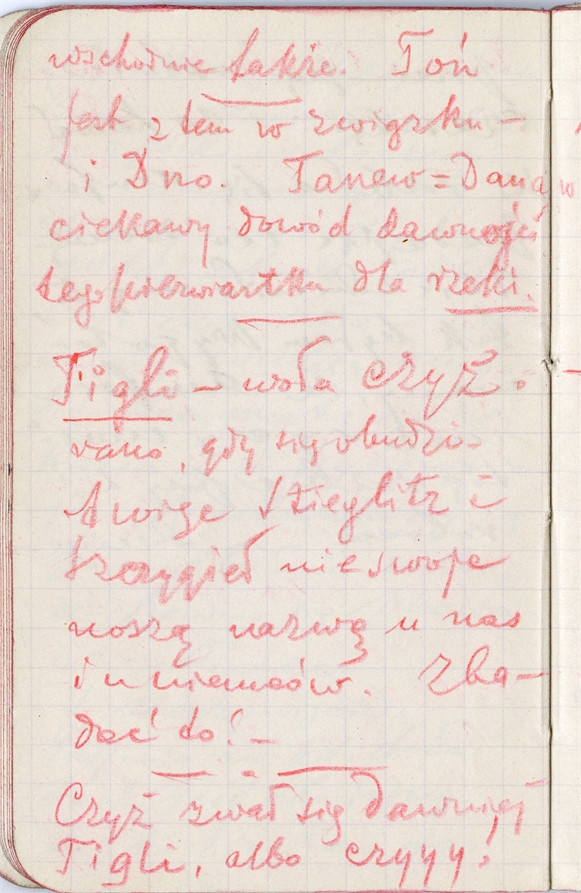 wschodnie także. Toń
jest z tem w związku –
i Dno. Tanew = Dana
ciekawy dowód dawności
tego pierwiastku dla rzeki.
Tigli – woła czyż.
rano, gdy się obudzi.
A więc Stieglitz i
Szczygieł nie swoje
noszą nazwę u nas
i u niemców. Zba-
dać to! –
Czyż zwał się dawniej
Tigli, albo czyyy!